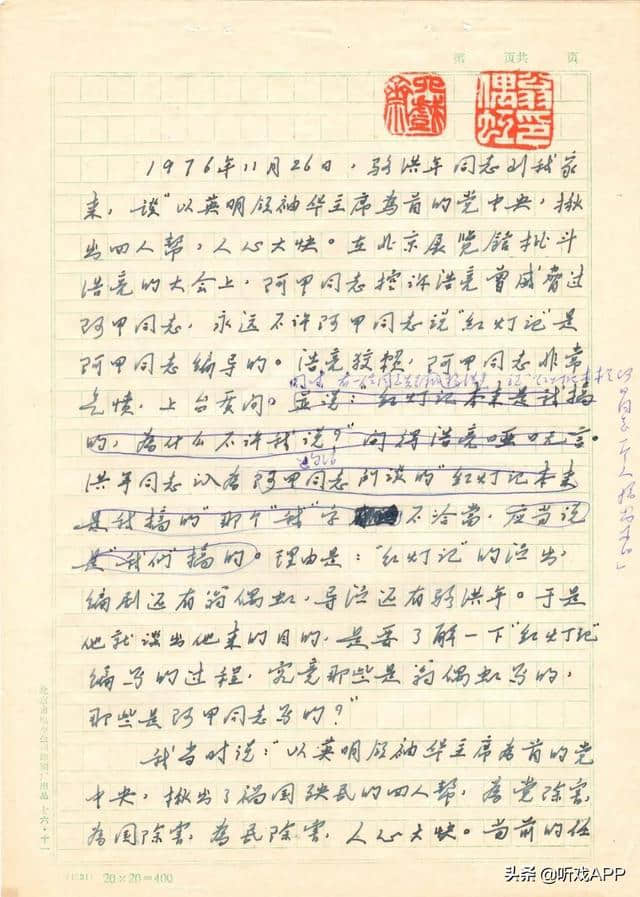 第 页共 页
翁偶虹印
1976年11月26日，骆洪年同志到我家
来，谈“以英明领袖华主席为首的党中央，揪
出四人帮，人心大快。在北京展览馆批斗
浩亮的大会上，阿甲同志控诉浩亮曾威胁过
阿甲同志，永远不许阿甲同志说“红灯记”是
阿甲同志编导的。浩亮狡赖，阿甲同志非常
气愤，上台质问。并说：“红灯记本来是我搞
的，为什么不许我说？”问得浩亮哑口无言。
洪年同志认为阿甲同志所谈的“红灯记本来
是我搞的”那个“我”字不恰当，应当说
是“我们”搞的。理由是：“红灯记”的演出，
编剧还有翁偶虹，导演还有骆洪年。于是
他就谈出他来的目的，是要了解一下“红灯记”
编写的过程，究竟那些是翁偶虹写的，
那些是阿甲同志写的？”
我当时说：“以英明领袖华主席为首的党
中央，揪出了祸国殃民的四人帮，为党除害，
为国除害，为民除害，人心大快。当前的任
20×20=400
头条 @听戏APP